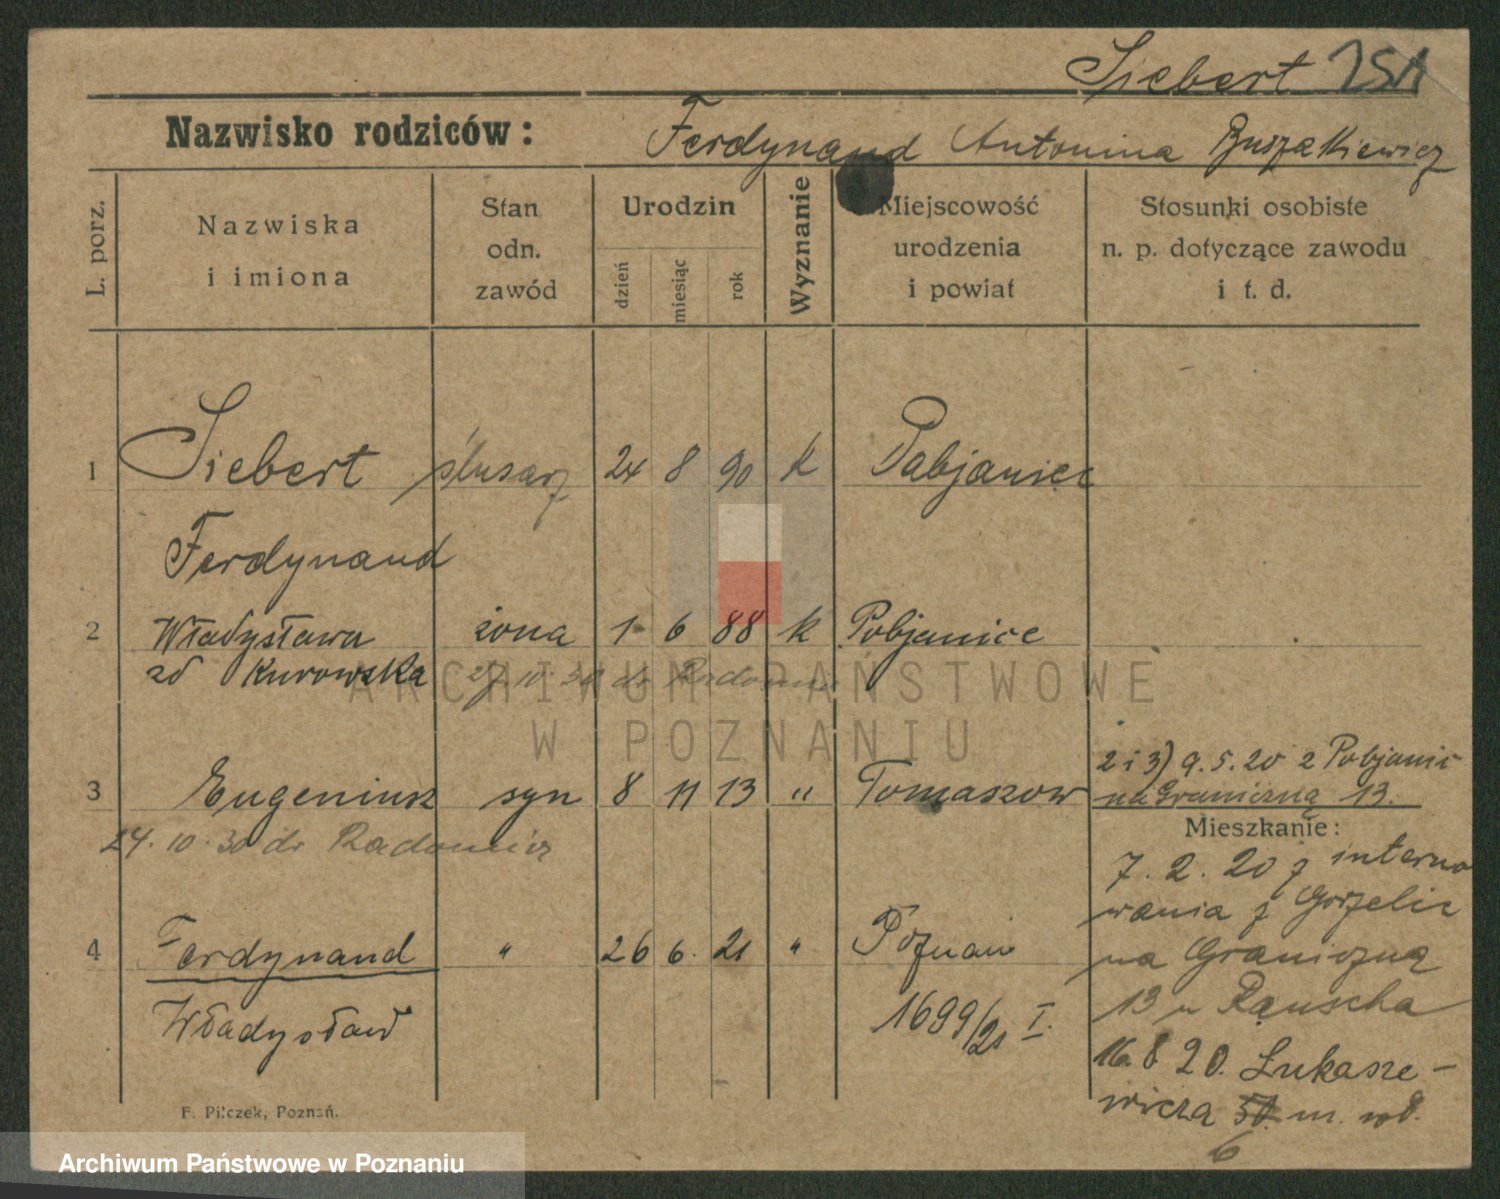 Siebert
Nazwisko rodziców: Ferdynand Antonina
L. porz.
Nazwiska i imiona
Stan odn. zawód
Urodzin
dzień
miesiąc
rok
Wyznanie
Miejscowość urodzenia i powiat
Stosunki osobiste n. p. dotyczące zawodu i t. d.
1 Siebert ślusarz 24 8 90 k Pabjanice
Ferdynand
2 Władysława żona 1 6 88 k Pobjanice
zd Kurowska 27.10.30 do
3 Eugeniusz syn 8 11 13 " Tomaszow
24.10.30 do
2 i 3) 9.5.20 z Pobjanic
na Graniczną 13.
Mieszkanie:
7.2.20 z interno
wania z
na Graniczną
13 u Rauscha
16.8.20. Łukasze-
wicza m.
6
4 Ferdynand " 26 6. 21 " Poznań
Władysław 1699/21 I.
F. Pilczek, Poznań.
ARCHIWUM PAŃSTWOWE
W POZNANIU
Archiwum Państwowe w Poznaniu